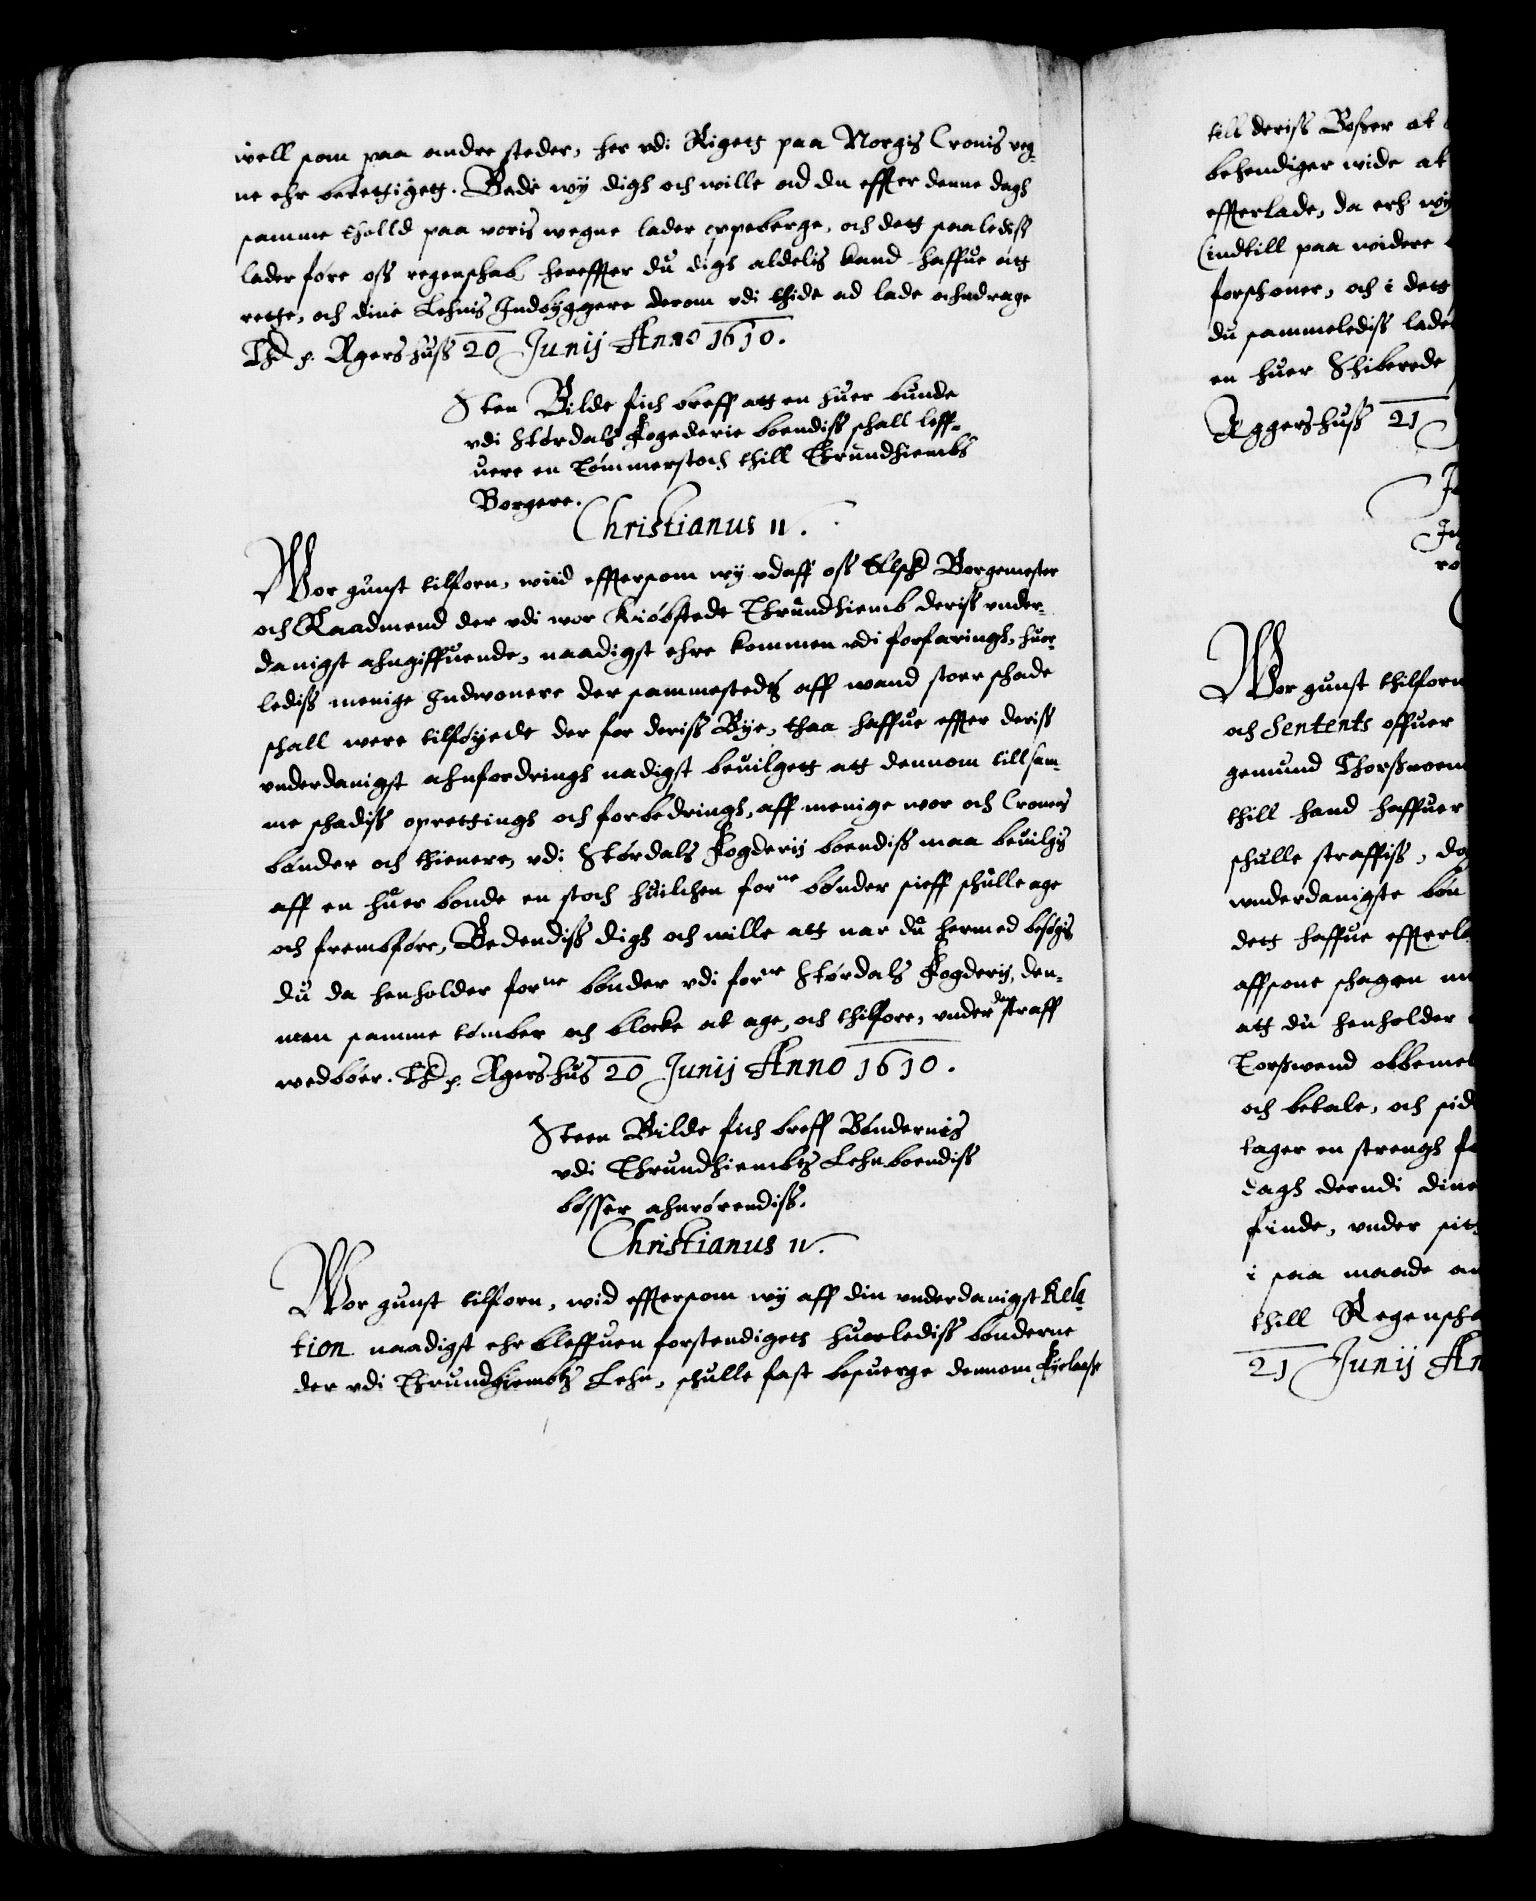 well som paa andre steder, her vdi Rigett paa Norgis Cronis reg-
ne ehr berettigett. Bede wÿ digh och wille ad du effter denne dagh
samme tholld paa voris wegne lader oppeberge, och dett saalediss
lader føre oss regenschab hereffter du digh aldelis kand haffue att
rette, och dine Lehnis Indbÿggere derom vdi thide ad lade ahndrage
Agershuss 20 Junij Anno 1610.
Sten Bilde fich breff att en huer bunde
vdi Størdals fogederie boendiss schall leff-
uere en Tømmerstoch thill Thrundhiembs
Borgere.
Christianus 4.
Wor gunst tilforn, wiid efftersom wy vdaff oss Elschl Borgemester
och Raadmend der vdi wor Kiøbstedt Thrundhiemb deriss vnder-
danigst ahngiffuende, naadigst ehre kommen vdi forfaringh, huor-
lediss menige Indwonere der sammestedtz aff wand stoer schade
schall were tilføÿede der for deriss Bÿe, thaa haffue effter deriss
vnderdanigst ahnfordringh nadigst beuilgett att dennom till sam-
me schadiss oprettingh och forbedringh, aff menige wor och Cronens
bønder och thienere, vdi Størdals fogderij boendiss maa beuilgis
aff en huer bonde en stoch huilchen forne bønder sielff schulle age
och frembføre, Bedendiss digh och wille att nar du hermed besøgis
du da henholder forne bønder vdi forne Størdals fogderij, den-
nom samme tømber och blocke at age, och thilføre, vnder den straff
wedbøer. Agershus 20 Junij Anno 1610.
Steen Bilde fich breff Bøndernis
vdi Thrundhiembtz Lehn boendiss
bøsser ahnrørendiss.
Christianus 4.
Wor gunst tilforn, wid efftersom wy aff din vnderdanigst Rela-
tion naadigst ehr bleffuen forstendigett huorlediss bønderne
der vdi Thrundhiembtz Lehn, schulle fast besuerge dennom
till deriss Bøsser at
behendiger wide at
effterlade, da erh wÿ
indtill paa widere
forschoner, och i dett
du sammelediss lader
en huer Schiberede
Aggershuss 21
Wor gunst thilforn
och Sentents offuer
gemund
thill hand haffuer
schulle straffiss,
wnderdanigste bøn
dett haffue
affsone schagen
att du henholder
obbemel
och betale, och sid
tager en strengh
dagh derudi dine
finde, vnder sit
i saa maade an
thill Regenscha
21 Junij An